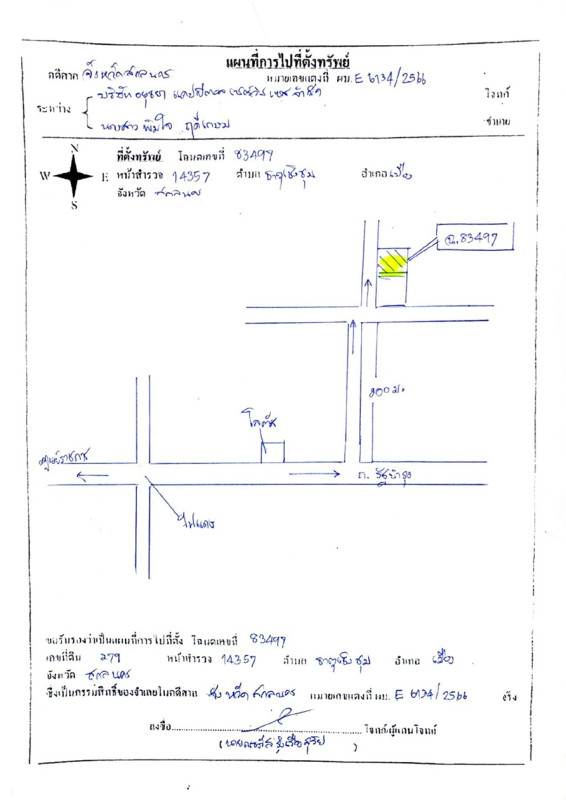 แผนที่การไปที่ตั้งทรัพย์
คดีศาล จังหวัดสกลนคร หมายเลขแดงที่ ผบ. E 6134/2566
ระหว่าง
บริษัท อยุธยา แคปปิตอล เซอร์วิสเซส จำกัด โจทก์
นางสาว พิมใจ จำเลย
N
W E
S
ที่ตั้งทรัพย์ โฉนดเลขที่ 83497
หน้าสำรวจ 14357 ตำบล ธาตุเชิงชุม อำเภอ เมือง
จังหวัด สกลนคร
ฉ.83497
200 ม.
โลตัส
ศูนย์ราชการ
ถ. รัฐบำรุง
ไฟแดง
ขอรับรองว่าเป็นแผนที่การไปที่ตั้ง โฉนดเลขที่ 83497
เลขที่ดิน 279 หน้าสำรวจ 14357 ตำบล ธาตุเชิงชุม อำเภอ เมือง
จังหวัด สกลนคร
ซึ่งเป็นกรรมสิทธิ์ของจำเลยในคดีศาล จังหวัดสกลนคร หมายเลขแดงที่ ผบ. E 6134/2566 จริง
ลงชื่อ โจทก์/ผู้แทนโจทก์